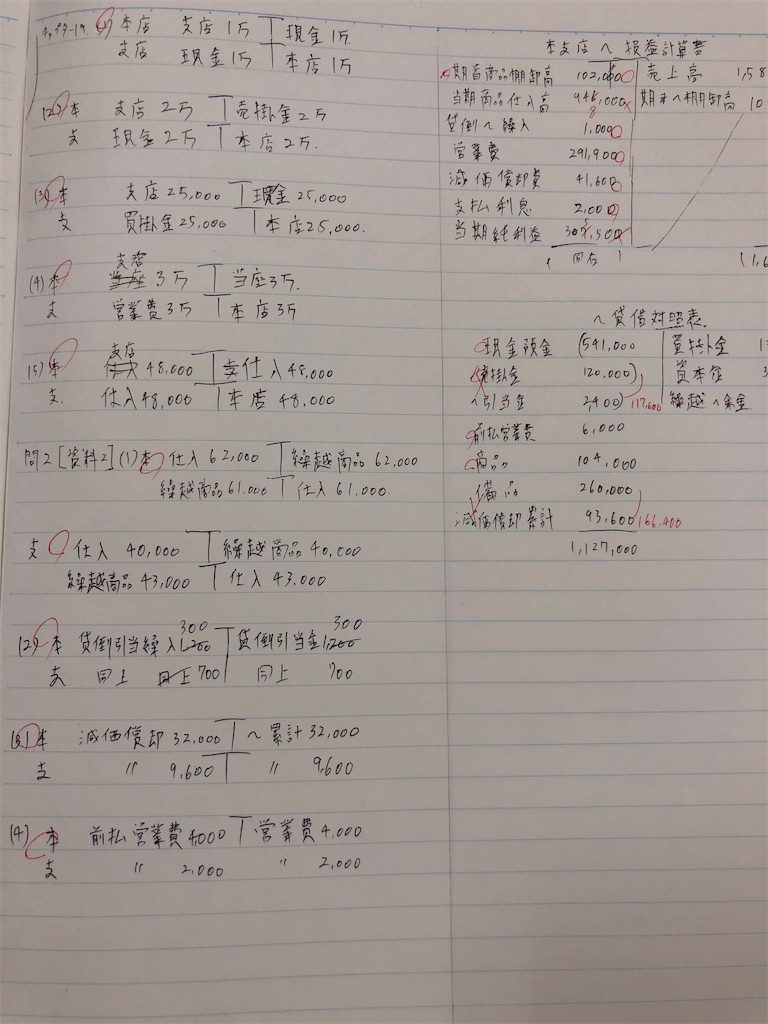 (1) 本店 支店 1万 現金 1万
支店 現金 1万 本店 1万
(2) 本 支店 2万 売掛金 2万
支 現金 2万 本店 2万.
(3) 本 支店 25,000 現金 25,000
支 買掛金 25,000 本店 25,000.
支店
(4) 本 当座 3万 当座 3万.
支 営業費 3万 本店 3万
支店
(5) 本 仕入 48,000 仕入 48,000
支. 仕入 48,000 本店 48,000
問2 [資料2] (1) 本 仕入 62,000 繰越商品 62,000
繰越商品 61,000 仕入 61,000.
支 仕入 40,000 繰越商品 40,000
繰越商品 43,000 仕入 43,000
300 300
(2) 本 貸倒引当繰入 1,200 貸倒引当金 1,200
支 同上 同上 700 同上 700.
(3) 本 減価償却 32,000 〜累計 32,000
支 〃 9,600 〃 9,600
(4) 本 前払営業費 4,000 営業費 4,000
支 〃 2,000 〃 2,000
本支店〜損益計算書
期首商品棚卸高 102,000 売上高 1,58
当期商品仕入高 期末〜棚卸高 10
8
貸倒〜繰入 1,000
営業費 291,900
減価償却費 41,600
支払利息 2,000
当期純利益
同右 1,6
〜貸借対照表.
現金預金 (541,000 買掛金
売掛金 120,000) 資本金 3
〜引当金 2,400 117,600 繰越〜余金
前払営業費 6,000
商品 104,000
備品 260,000
減価償却累計 93,600 166,400
1,127,000